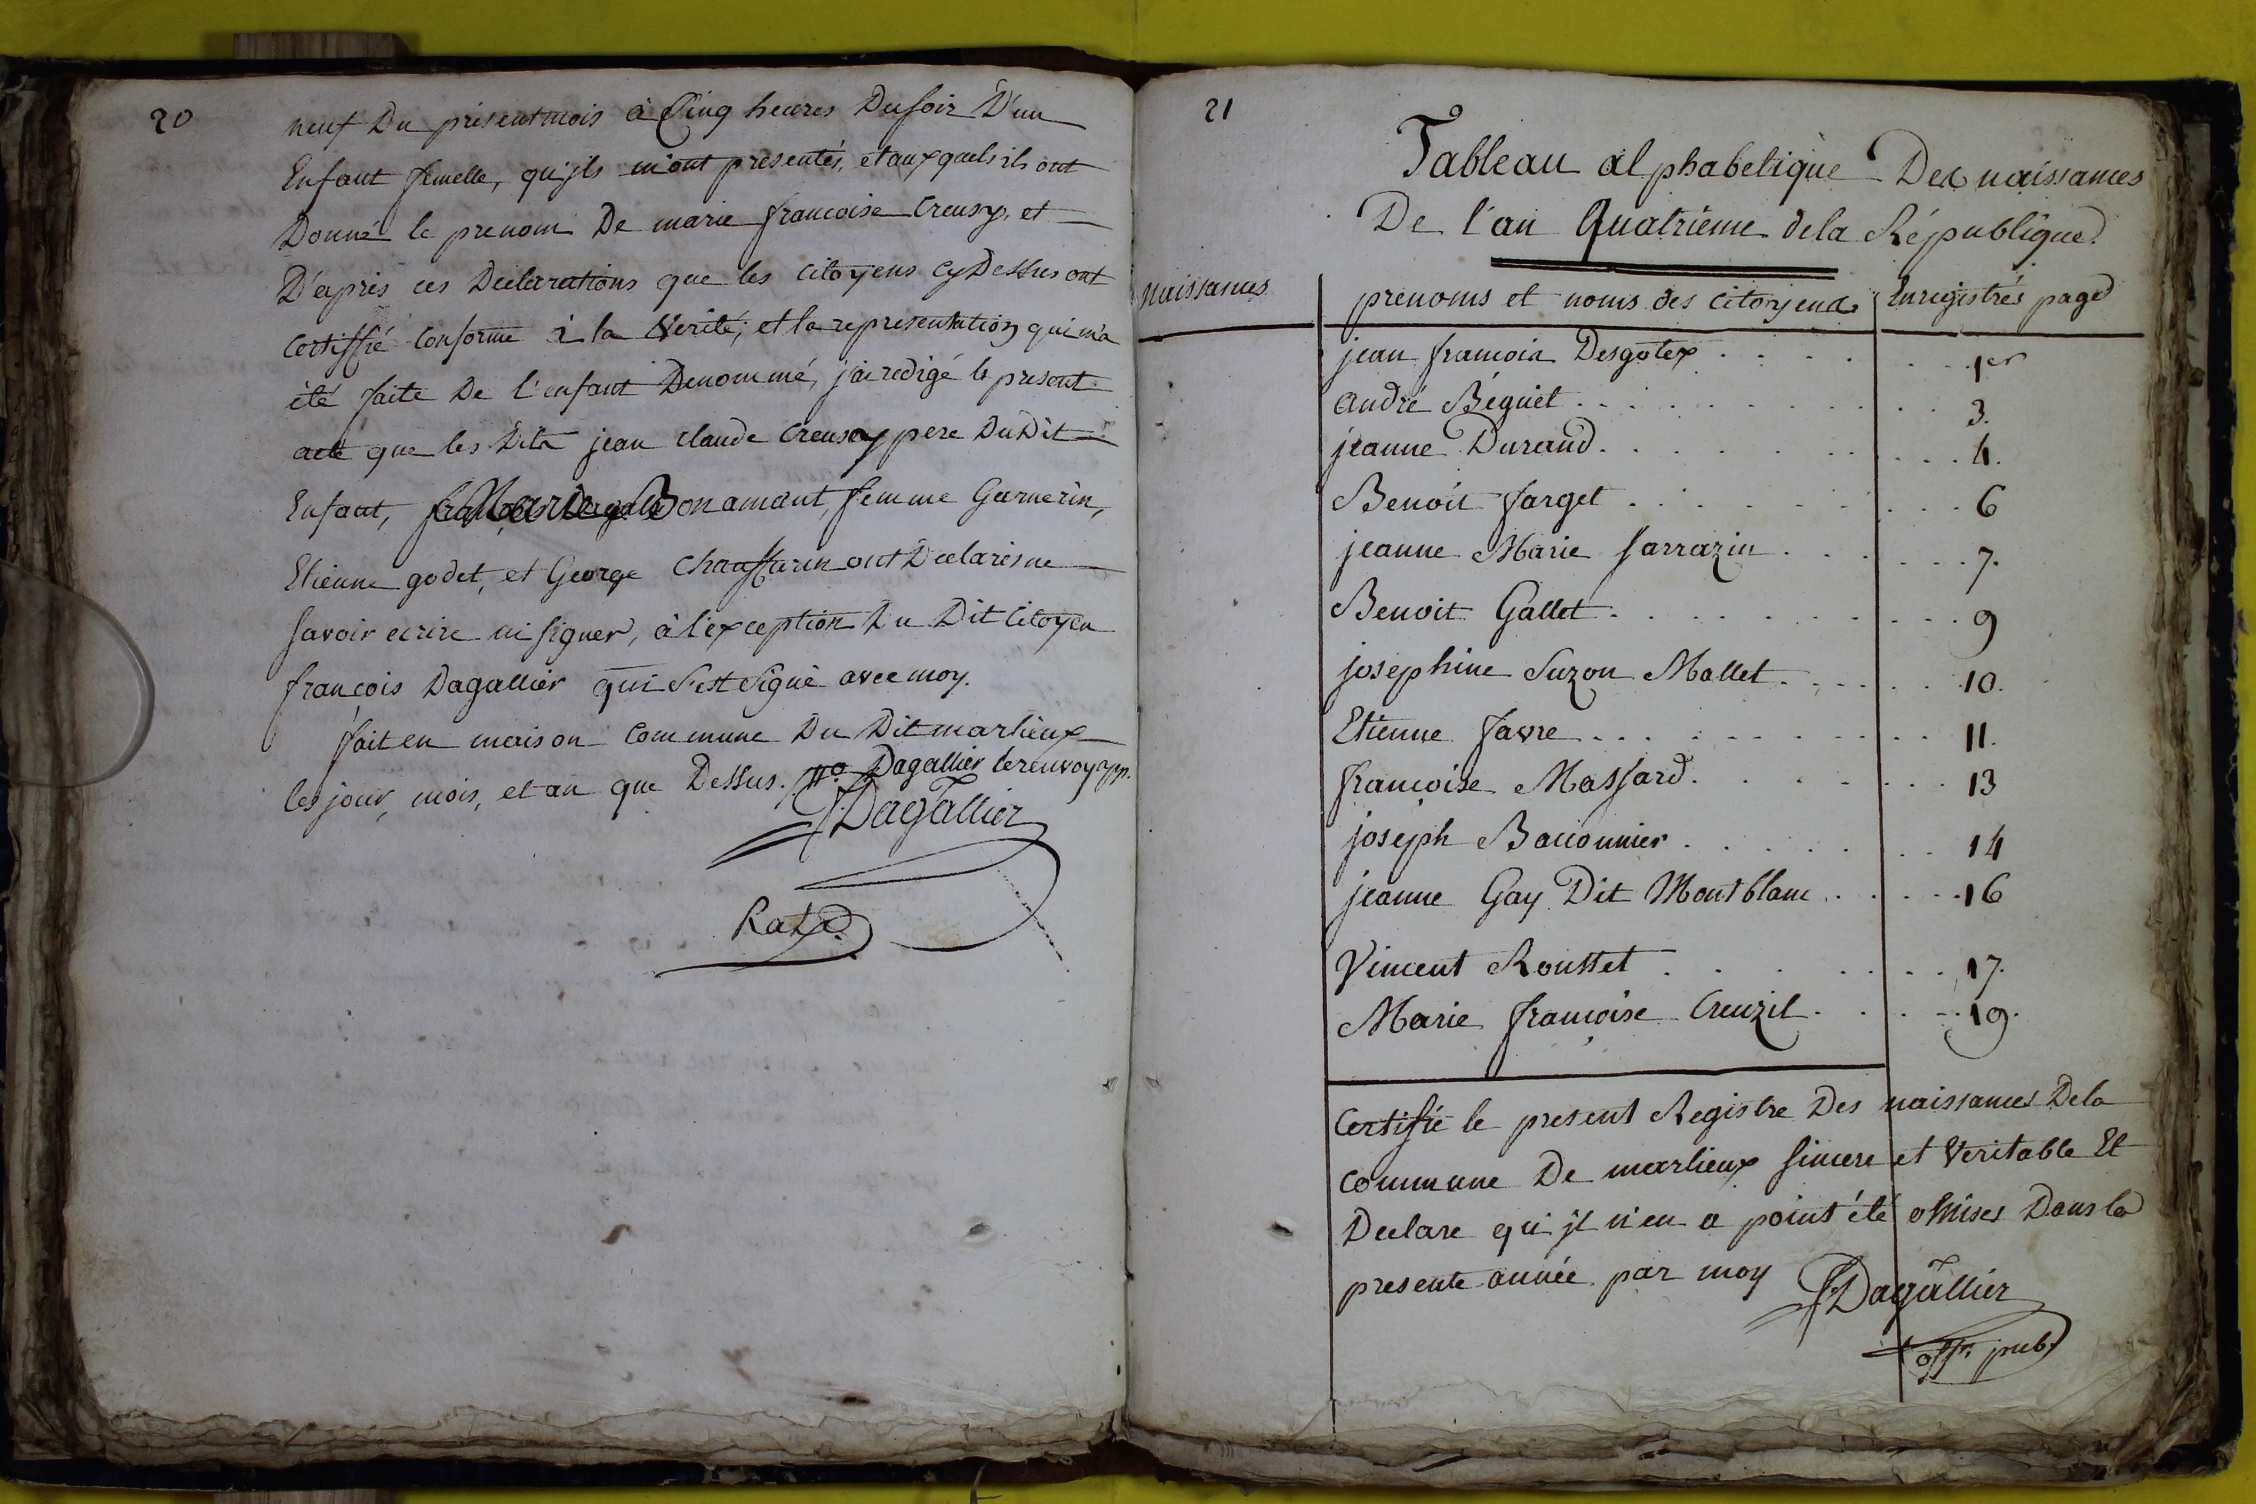 20
neuf Du présent mois à Cinq heures Du soir D'un
Enfant femelle, qu'jls m'ont presentés, et aux quels ils ont
Donné le prenom De marie francoise Creusy, et
D'après ces Declarations que les citoyens cy Dessus ont
certiffié conforme à la Verité, et la representation qui m'a
été faite De l'enfant Denommé, j'ai redigé le present
acte que les Dits jean claude Creusy pere DuDit
Enfant, Marie Bonamant, femme Garnerin,
Etienne godet, et George Chaffarin ont Declarés ne
savoir ecrire ni signer, à l'exception Du Dit Citoyen
françois Dagallier qui s'est signé avec moy.
fait en maison Commune Du Dit marlieux
les jour, mois, et an que Dessus. Dagallier le renvoy
Dagallier
21
Tableau alphabetique Des naissances
De l'an Quatrieme de la République
naissances
prenoms et noms des citoyens
Enregistrés page
jean francois Desgotex 1er
andré Béguet 3.
jeanne Durand 4.
Benoit farget 6
jeanne Marie Sarrazin 7.
Benoit Gallet 9
josephine Suzon Mallet 10.
Etienne favre 11.
françoise Massard 13
joseph Baconnier 14
jeanne Gay Dit Montblanc 16
Vincent Rousset 17.
Marie françoise Creuzil 19.
Certifié le present Registre Des naissances De la
commune De marlieux sincere et Veritable Et
Declare qu'jl n'en a point été omises Dans la
presente année par moy
Dagallier
offr. pub.